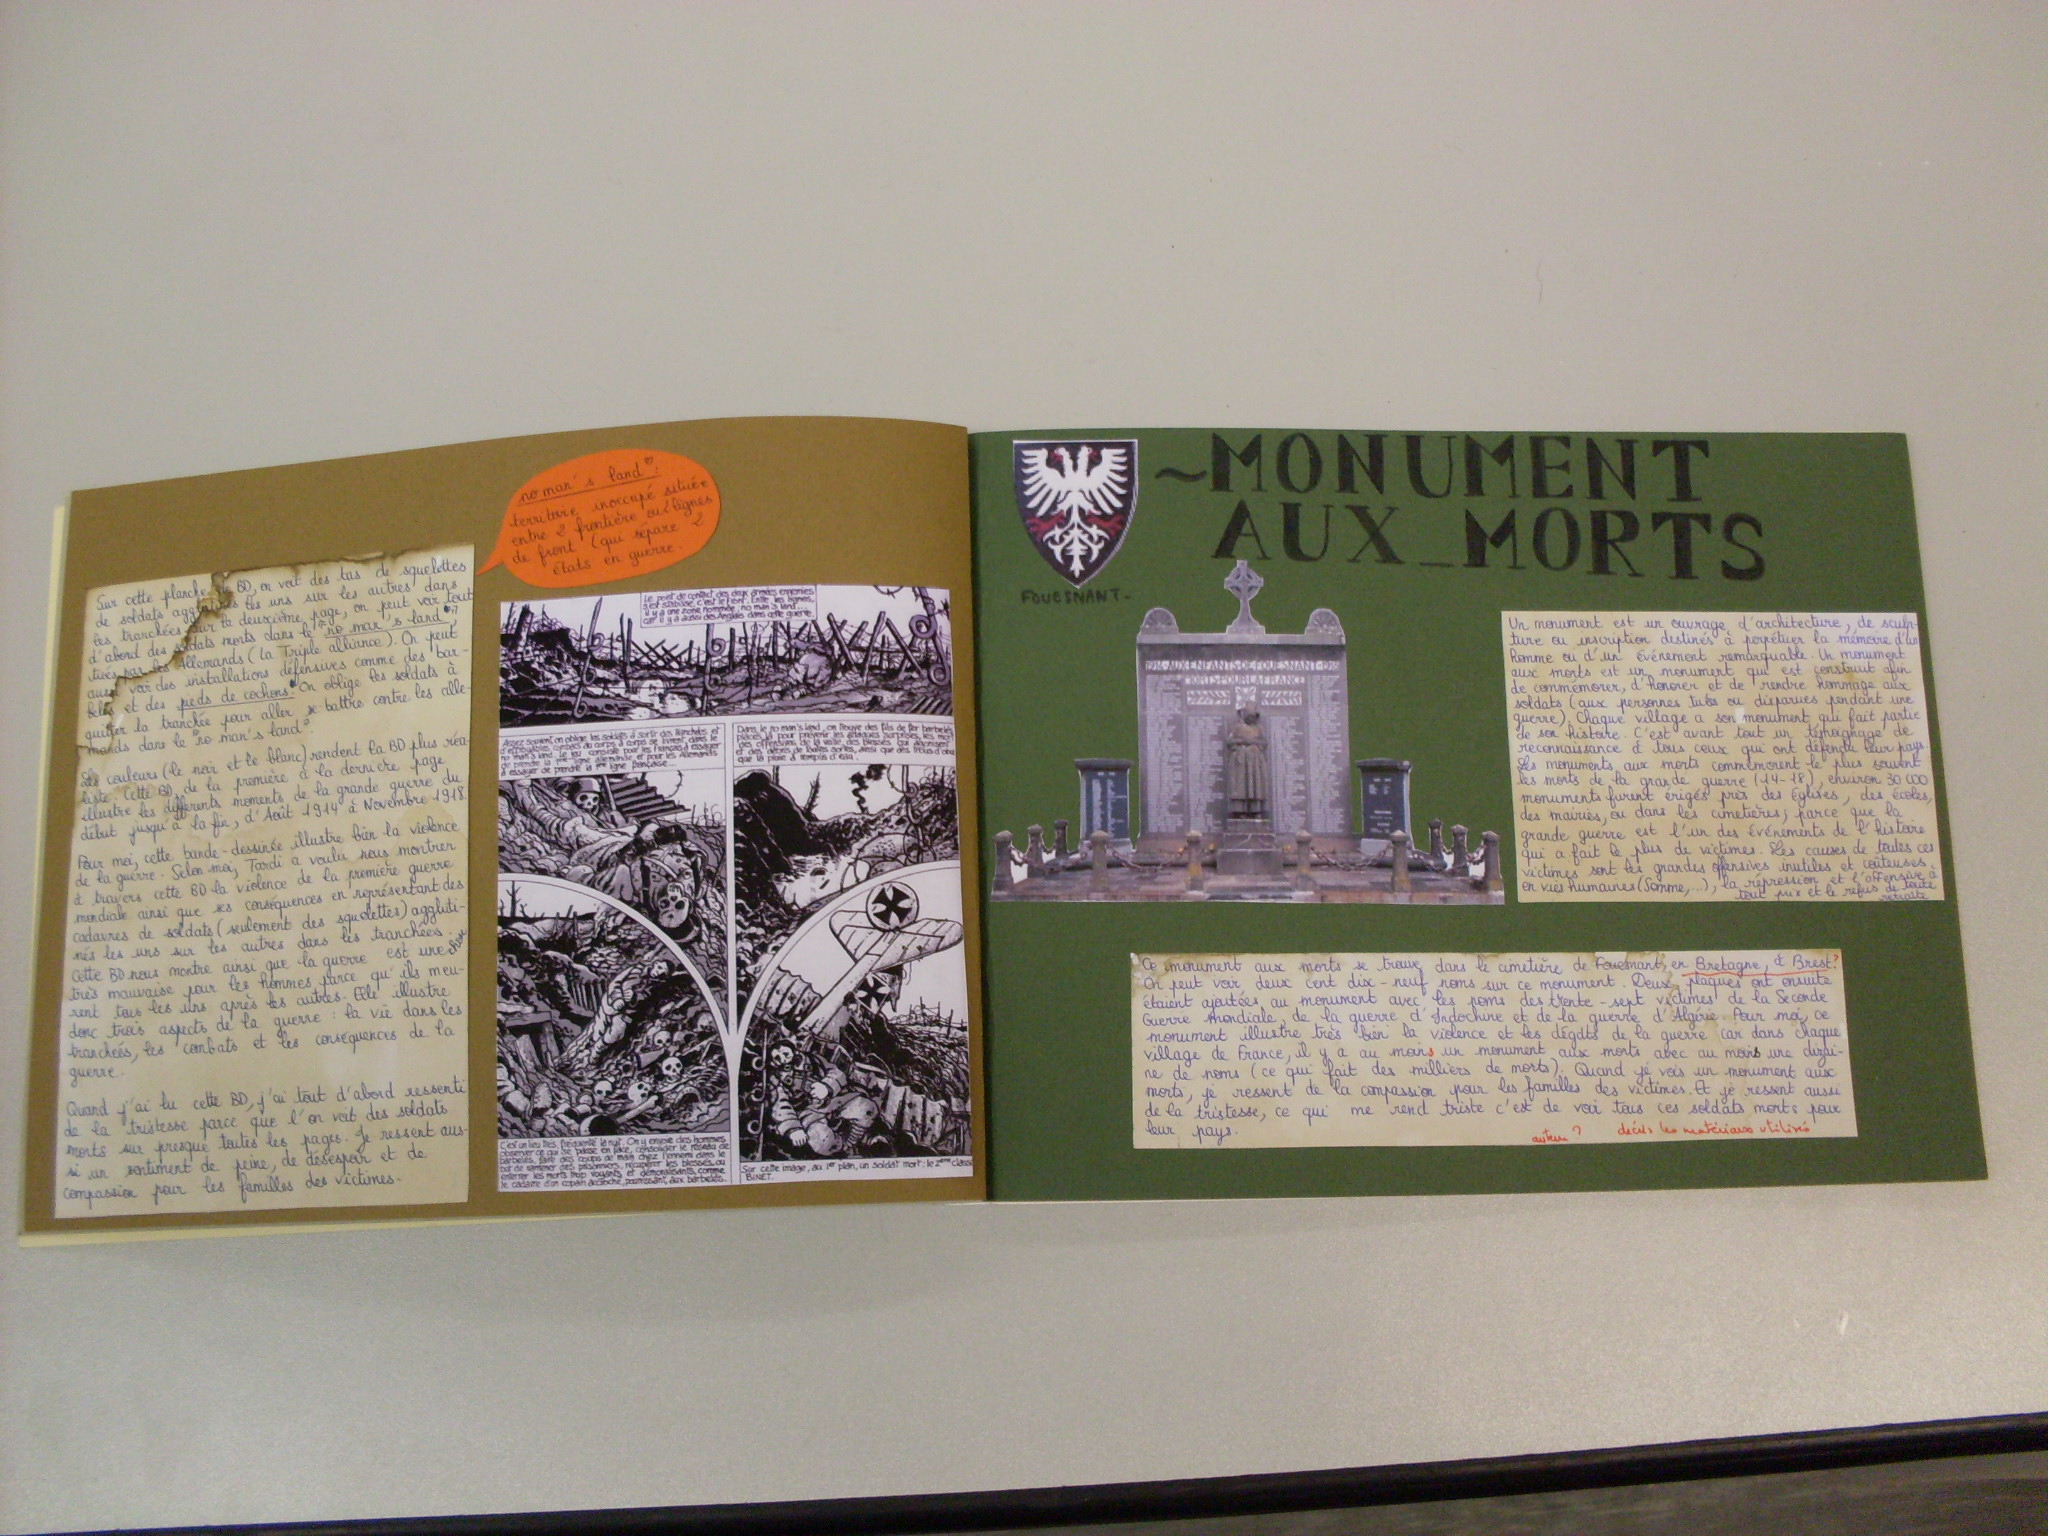 no man's land :
territoire inoccupé située
entre 2 frontière ou 2 lignes
de front (qui sépare 2
états en guerre.
Sur cette planche de BD, on voit des tas de squelettes
de soldats agglutinés les uns sur les autres dans
les tranchées. Sur la deuxième page, on peut voir tout
d'abord des soldats morts dans le "no man's land",
tués par les Allemands (la Triple alliance). On peut
aussi voir des installations défensives comme des bar-
belés et des pieds de cochons. On oblige les soldats à
quitter la tranchée pour aller se battre contre les alle-
mands dans le "no man's land".
Les couleurs (le noir et le blanc) rendent la BD plus réa-
liste. Cette BD, de la première à la dernière page,
illustre les différents moments de la grande guerre du
début jusqu'à la fin, d'Août 1914 à Novembre 1918.
Pour moi, cette bande-dessinée illustre bien la violence
de la guerre. Selon moi, Tardi a voulu nous montrer
à travers cette BD la violence de la première guerre
mondiale ainsi que ses conséquences en représentant des
cadavres de soldats (seulement des squelettes) aggluti-
nés les uns sur les autres dans les tranchées.
Cette BD nous montre ainsi que la guerre est une chose
très mauvaise pour les hommes parce qu'ils meu-
rent tous les uns après les autres. Elle illustre
donc trois aspects de la guerre : la vie dans les
tranchées, les combats et les conséquences de la
guerre.
Quand j'ai lu cette BD, j'ai tout d'abord ressenti
de la tristesse parce que l'on voit des soldats
morts sur presque toutes les pages. Je ressent aus-
si un sentiment de peine, de désespoir et de
compassion pour les familles des victimes.
Le point de contact des deux armées ennemies
s'est stabilisé, c'est le front. Entre les lignes,
il y a une zone nommée : no man's land...
car il y a aussi des Anglais dans cette guerre.
Assez souvent, on oblige les soldats à sortir des tranchées et
d'effroyables combats au corps à corps se livrent, dans le
no man's land. Le jeu consiste pour les Français à essayer
de prendre la 1ère ligne allemande et pour les Allemands
à essayer de prendre la 1ère ligne française...
Dans le no man's land, on trouve des fils de fer barbelés,
placés là pour prévenir les attaques surprises, les morts
des offensives de la veille, des blessés qui agonisent
et des débris de toutes sortes, ainsi que des trous d'obus
que la pluie a remplis d'eau.
C'est un lieu très fréquenté la nuit. On y envoie des hommes
observer ce qui se passe en face, consolider le réseau de
barbelés, faire des coups de main chez l'ennemi dans le
but de ramener des prisonniers, récupérer les blessés, ou
enterrer les morts trop voyants et démoralisants, comme
le cadavre d'un copain accroché, pourrissant, aux barbelés.
Sur cette image, au 1er plan, un soldat mort : le 2ème classe
BINET.
~MONUMENT
AUX_MORTS
FOUESNANT-
1914·AUX·ENFANTS·DE·FOUESNANT·1918
MORTS·POUR·LA·FRANCE
Un monument est un ouvrage d'architecture, de sculp-
ture ou inscription destinés à perpétuer la mémoire d'un
homme ou d'un événement remarquable. Un monument
aux morts est un monument qui est construit afin
de commémorer, d'honorer et de rendre hommage aux
soldats (aux personnes tués ou disparues pendant une
guerre). Chaque village a son monument qui fait partie
de son histoire. C'est avant tout un témoignage de
reconnaissance à tous ceux qui ont défendu leur pays.
Les monuments aux morts commémorent le plus souvent
les morts de la grande guerre (14-18), environ 30 000
monuments furent érigés près des églises, des écoles,
des mairies, ou dans les cimetières; parce que la
grande guerre est l'un des événements de l'histoire
qui a fait le plus de victimes. Les causes de toutes ces
victimes sont les grandes offensives inutiles et coûteuses
en vies humaines (Somme,...), la répression et l'offensive à
tout prix et le refus de toute
retraite
Ce monument aux morts se trouve dans le cimetière de Fouesnant, en Bretagne, à Brest?
On peut voir deux cent dix-neuf noms sur ce monument. Deux plaques ont ensuite
étaient ajoutées au monument avec les noms des trente-sept victimes de la Seconde
Guerre mondiale, de la guerre d'Indochine et de la guerre d'Algérie. Pour moi, ce
monument illustre très bien la violence et les dégâts de la guerre car dans chaque
village de France, il y a au moins un monument aux morts avec au moins une dizai-
ne de noms (ce qui fait des milliers de morts). Quand je vois un monument aux
morts, je ressent de la compassion pour les familles des victimes. Et je ressent aussi
de la tristesse, ce qui me rend triste c'est de voir tous ces soldats morts pour
leur pays.
auteur? décris les matériaux utilisés